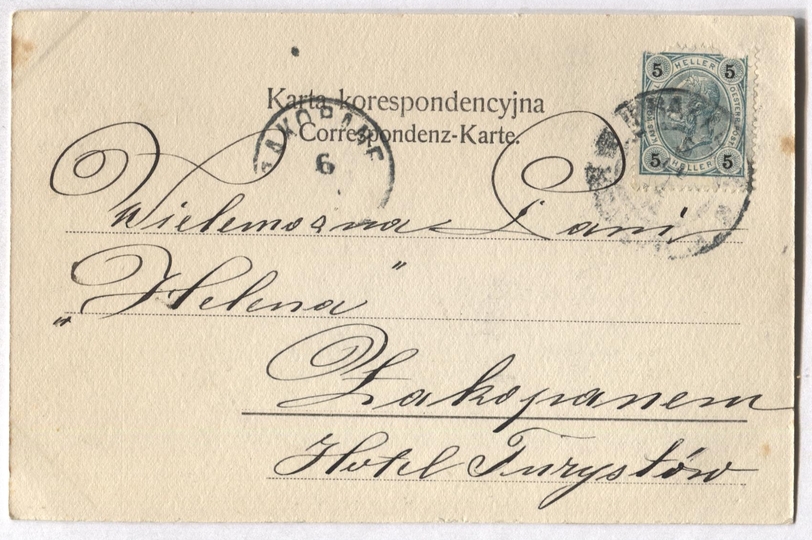 Karta korespondencyjna
Correspondenz-Karte.
5 HELLER 5
5 HELLER 5
ZAKOPANE
6
Wielmożna Pani
„Helena”
Zakopanem
Hotel Turystów